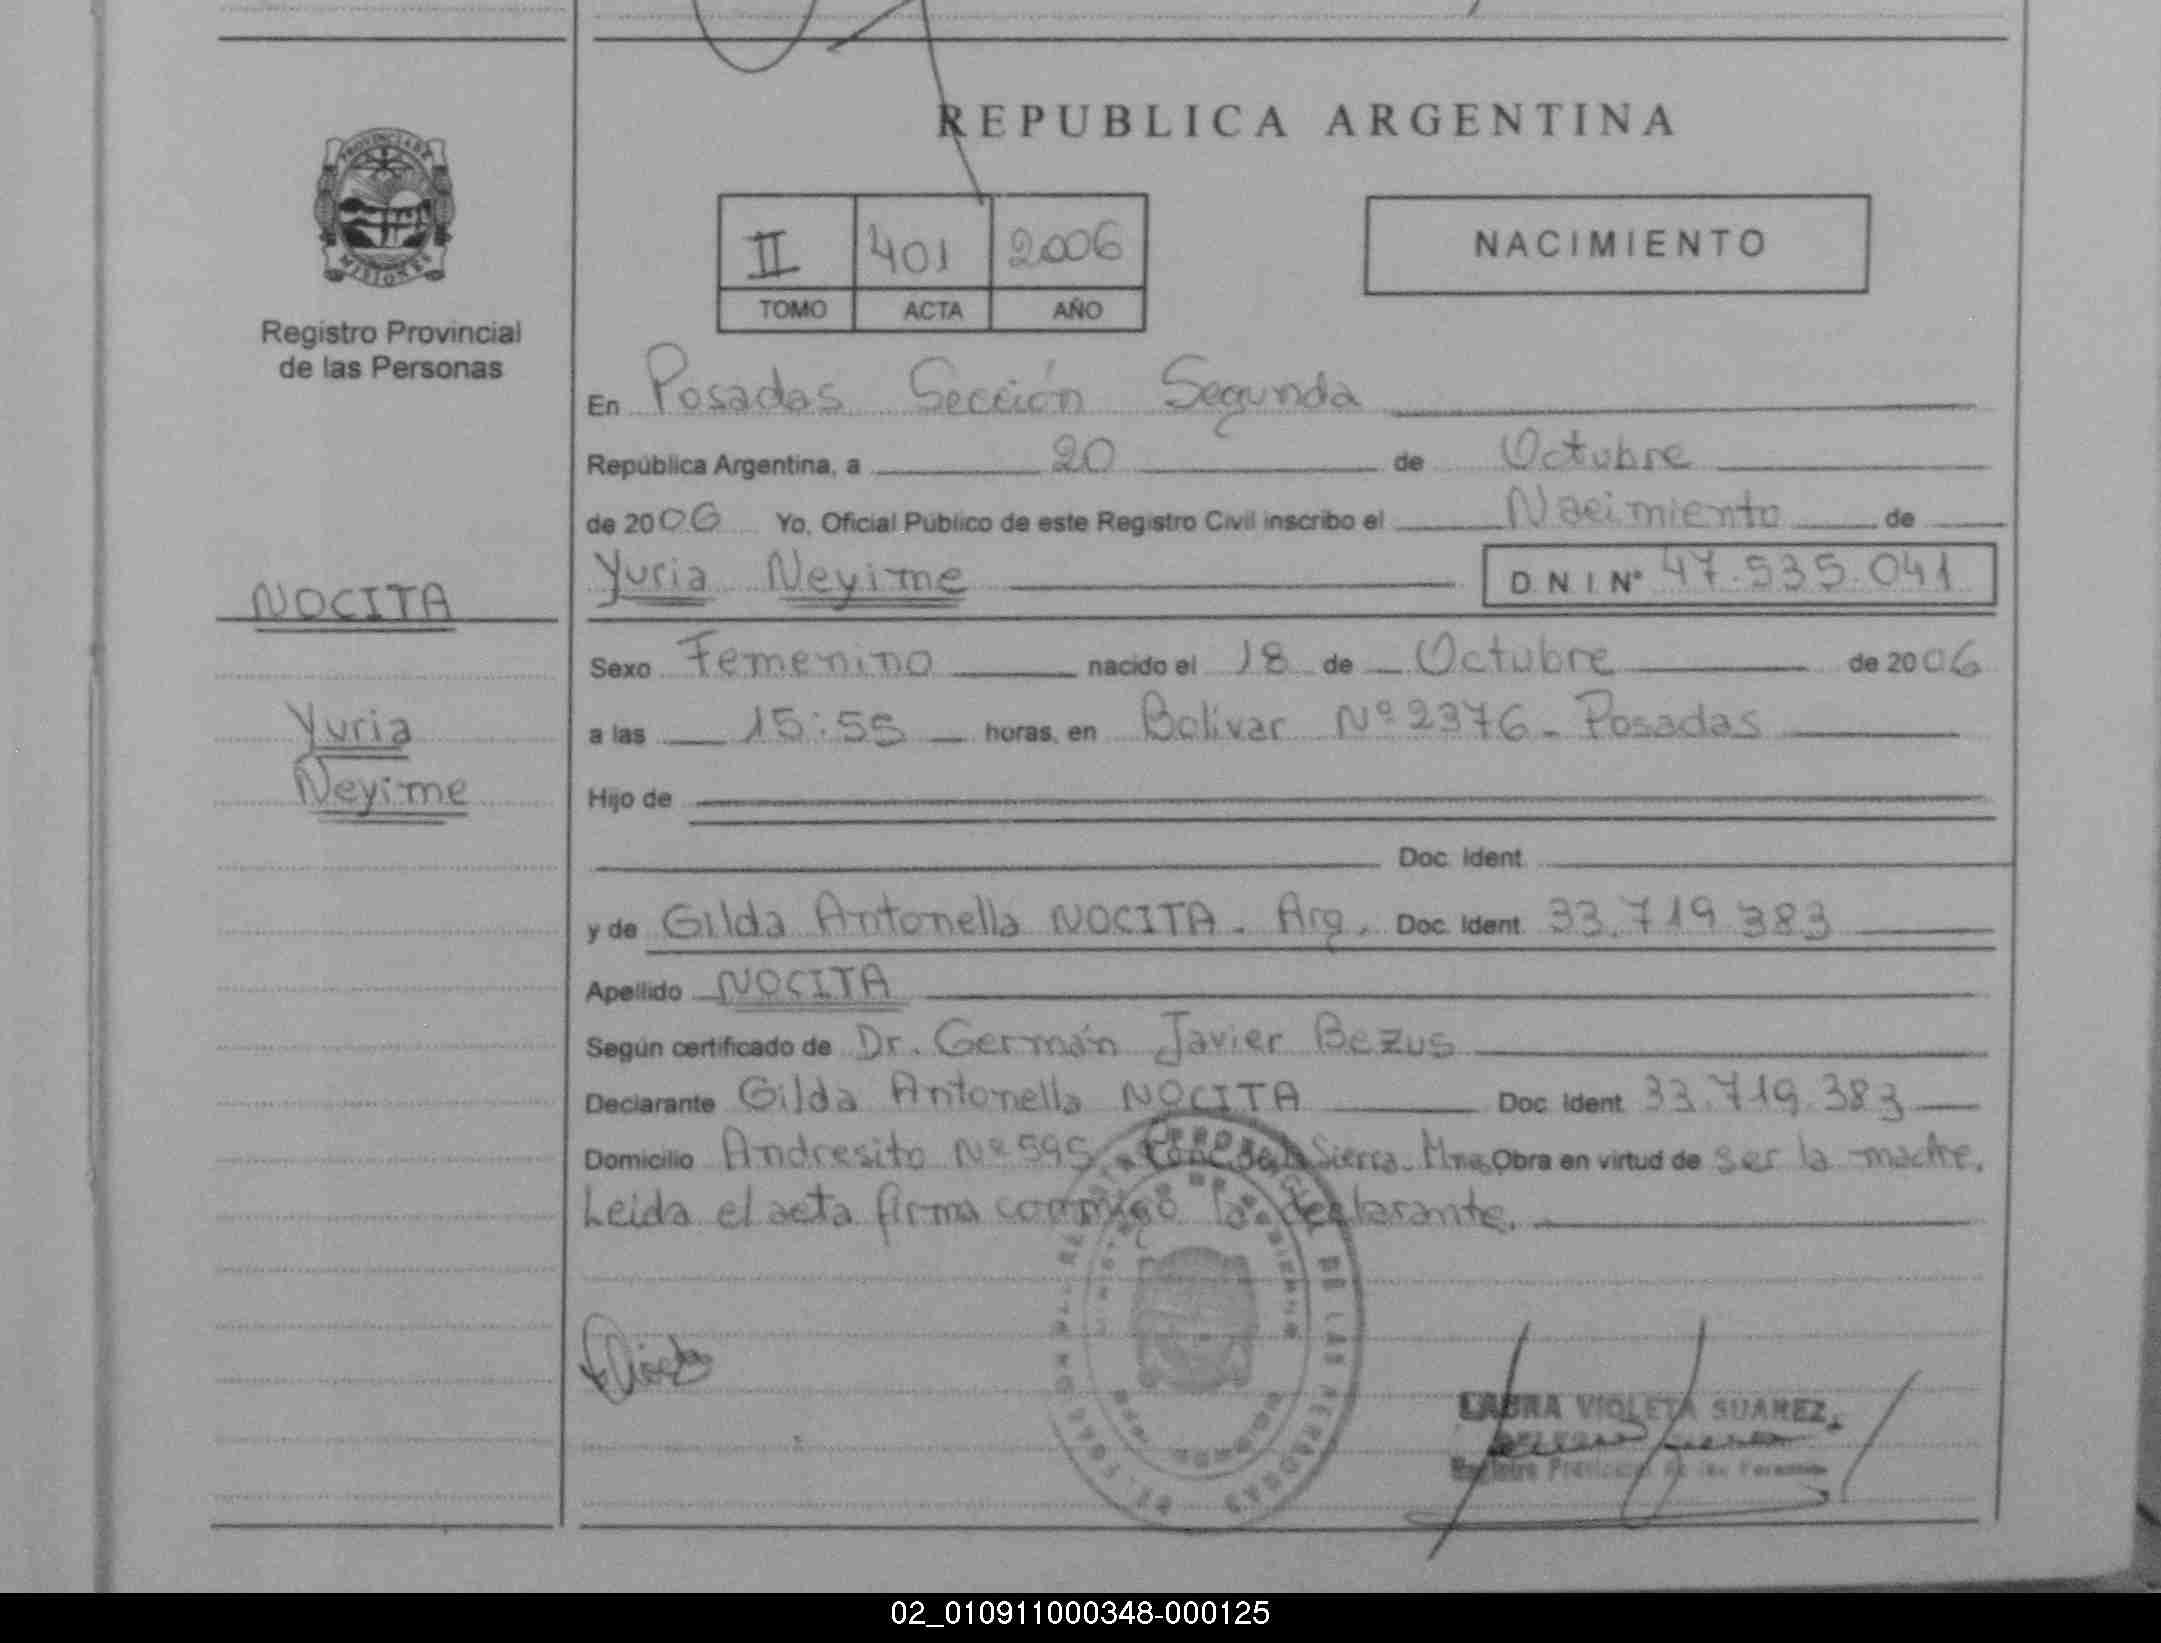 REPUBLICA ARGENTINA
PROVINCIA DE
MISIONES
Registro Provincial
de las Personas
II 401 2006
TOMO ACTA AÑO
NACIMIENTO
En Posadas Sección Segunda
República Argentina, a 20 de Octubre
de 2006 Yo, Oficial Público de este Registro Civil inscribo el Nacimiento de
NOCITA
Yuria Neyime D N I Nº 47.535.041
Sexo Femenino nacido el 18 de Octubre de 2006
Yuria
Neyime
a las 15:55 horas, en Bolívar Nº 2376 - Posadas
Hijo de
Doc. Ident.
y de Gilda Antonella NOCITA. Arg. Doc. Ident. 33.719.383
Apellido NOCITA
Según certificado de Dr. Germán Javier Bezus
Declarante Gilda Antonella NOCITA Doc. Ident. 33.719.383
Domicilio Andresito Nº 595 Sierra. Mnes Obra en virtud de ser la madre.
Leida el acta firma conmigo la declarante.
LAURA VIOLETA SUAREZ
Registro Provincial de las Personas
02_010911000348-000125